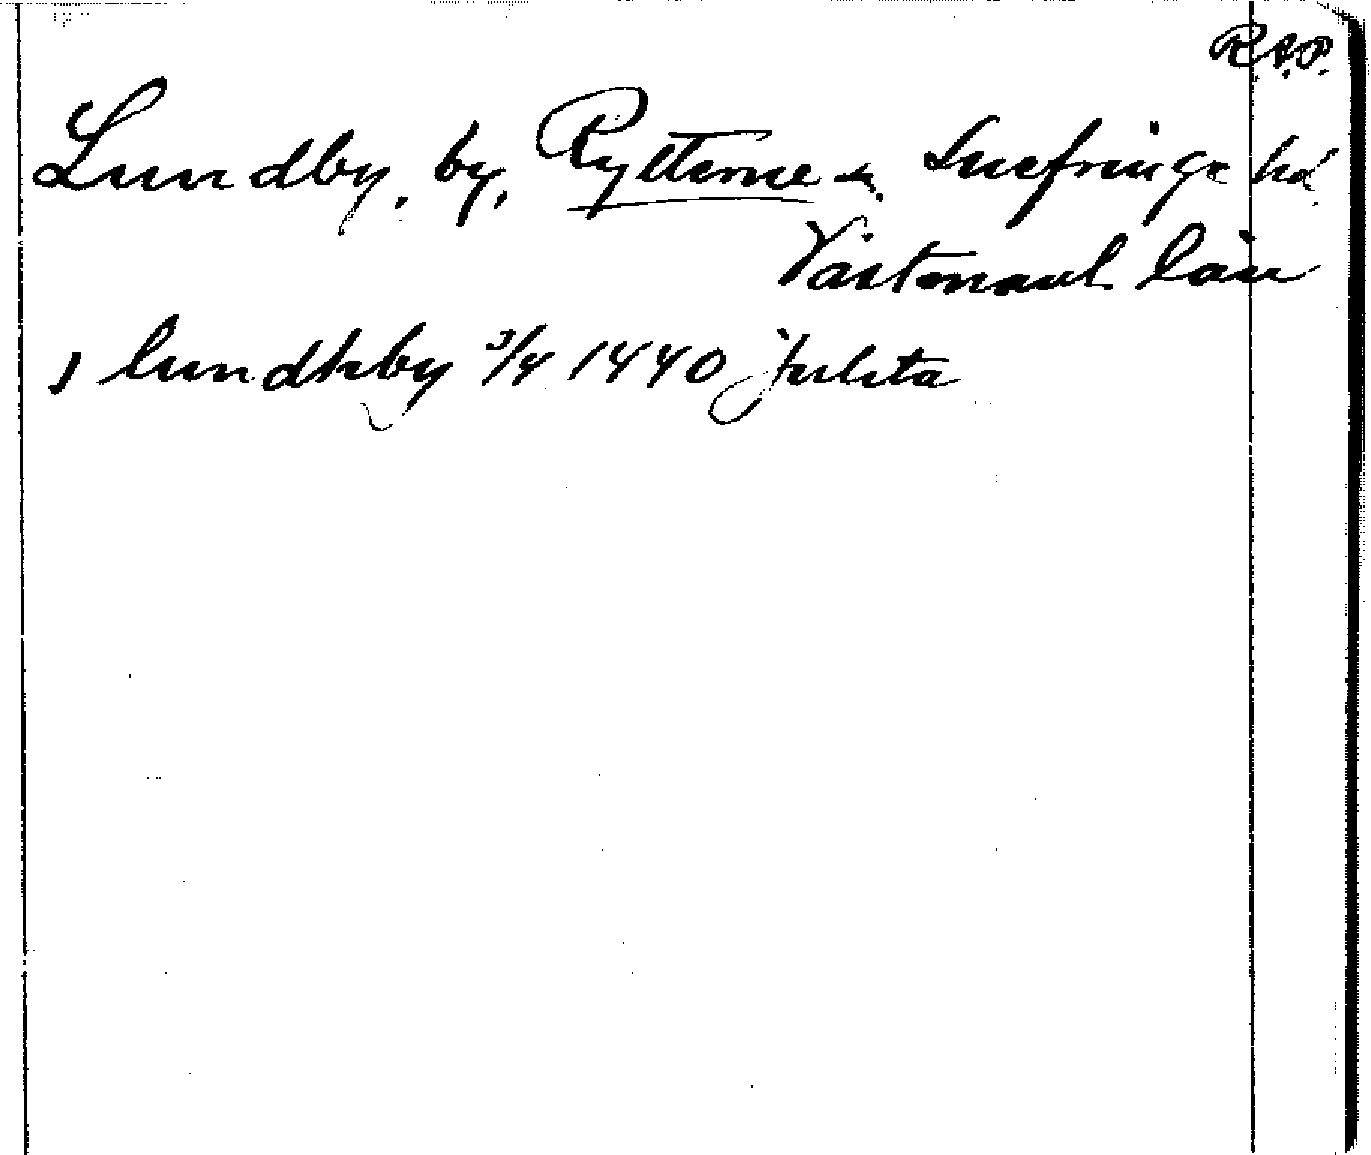 R.A.P.
Lundby, by, Rytterne sn. Snefringe hd
Västmanl. län
j lundhby 3/4 1440 Julita